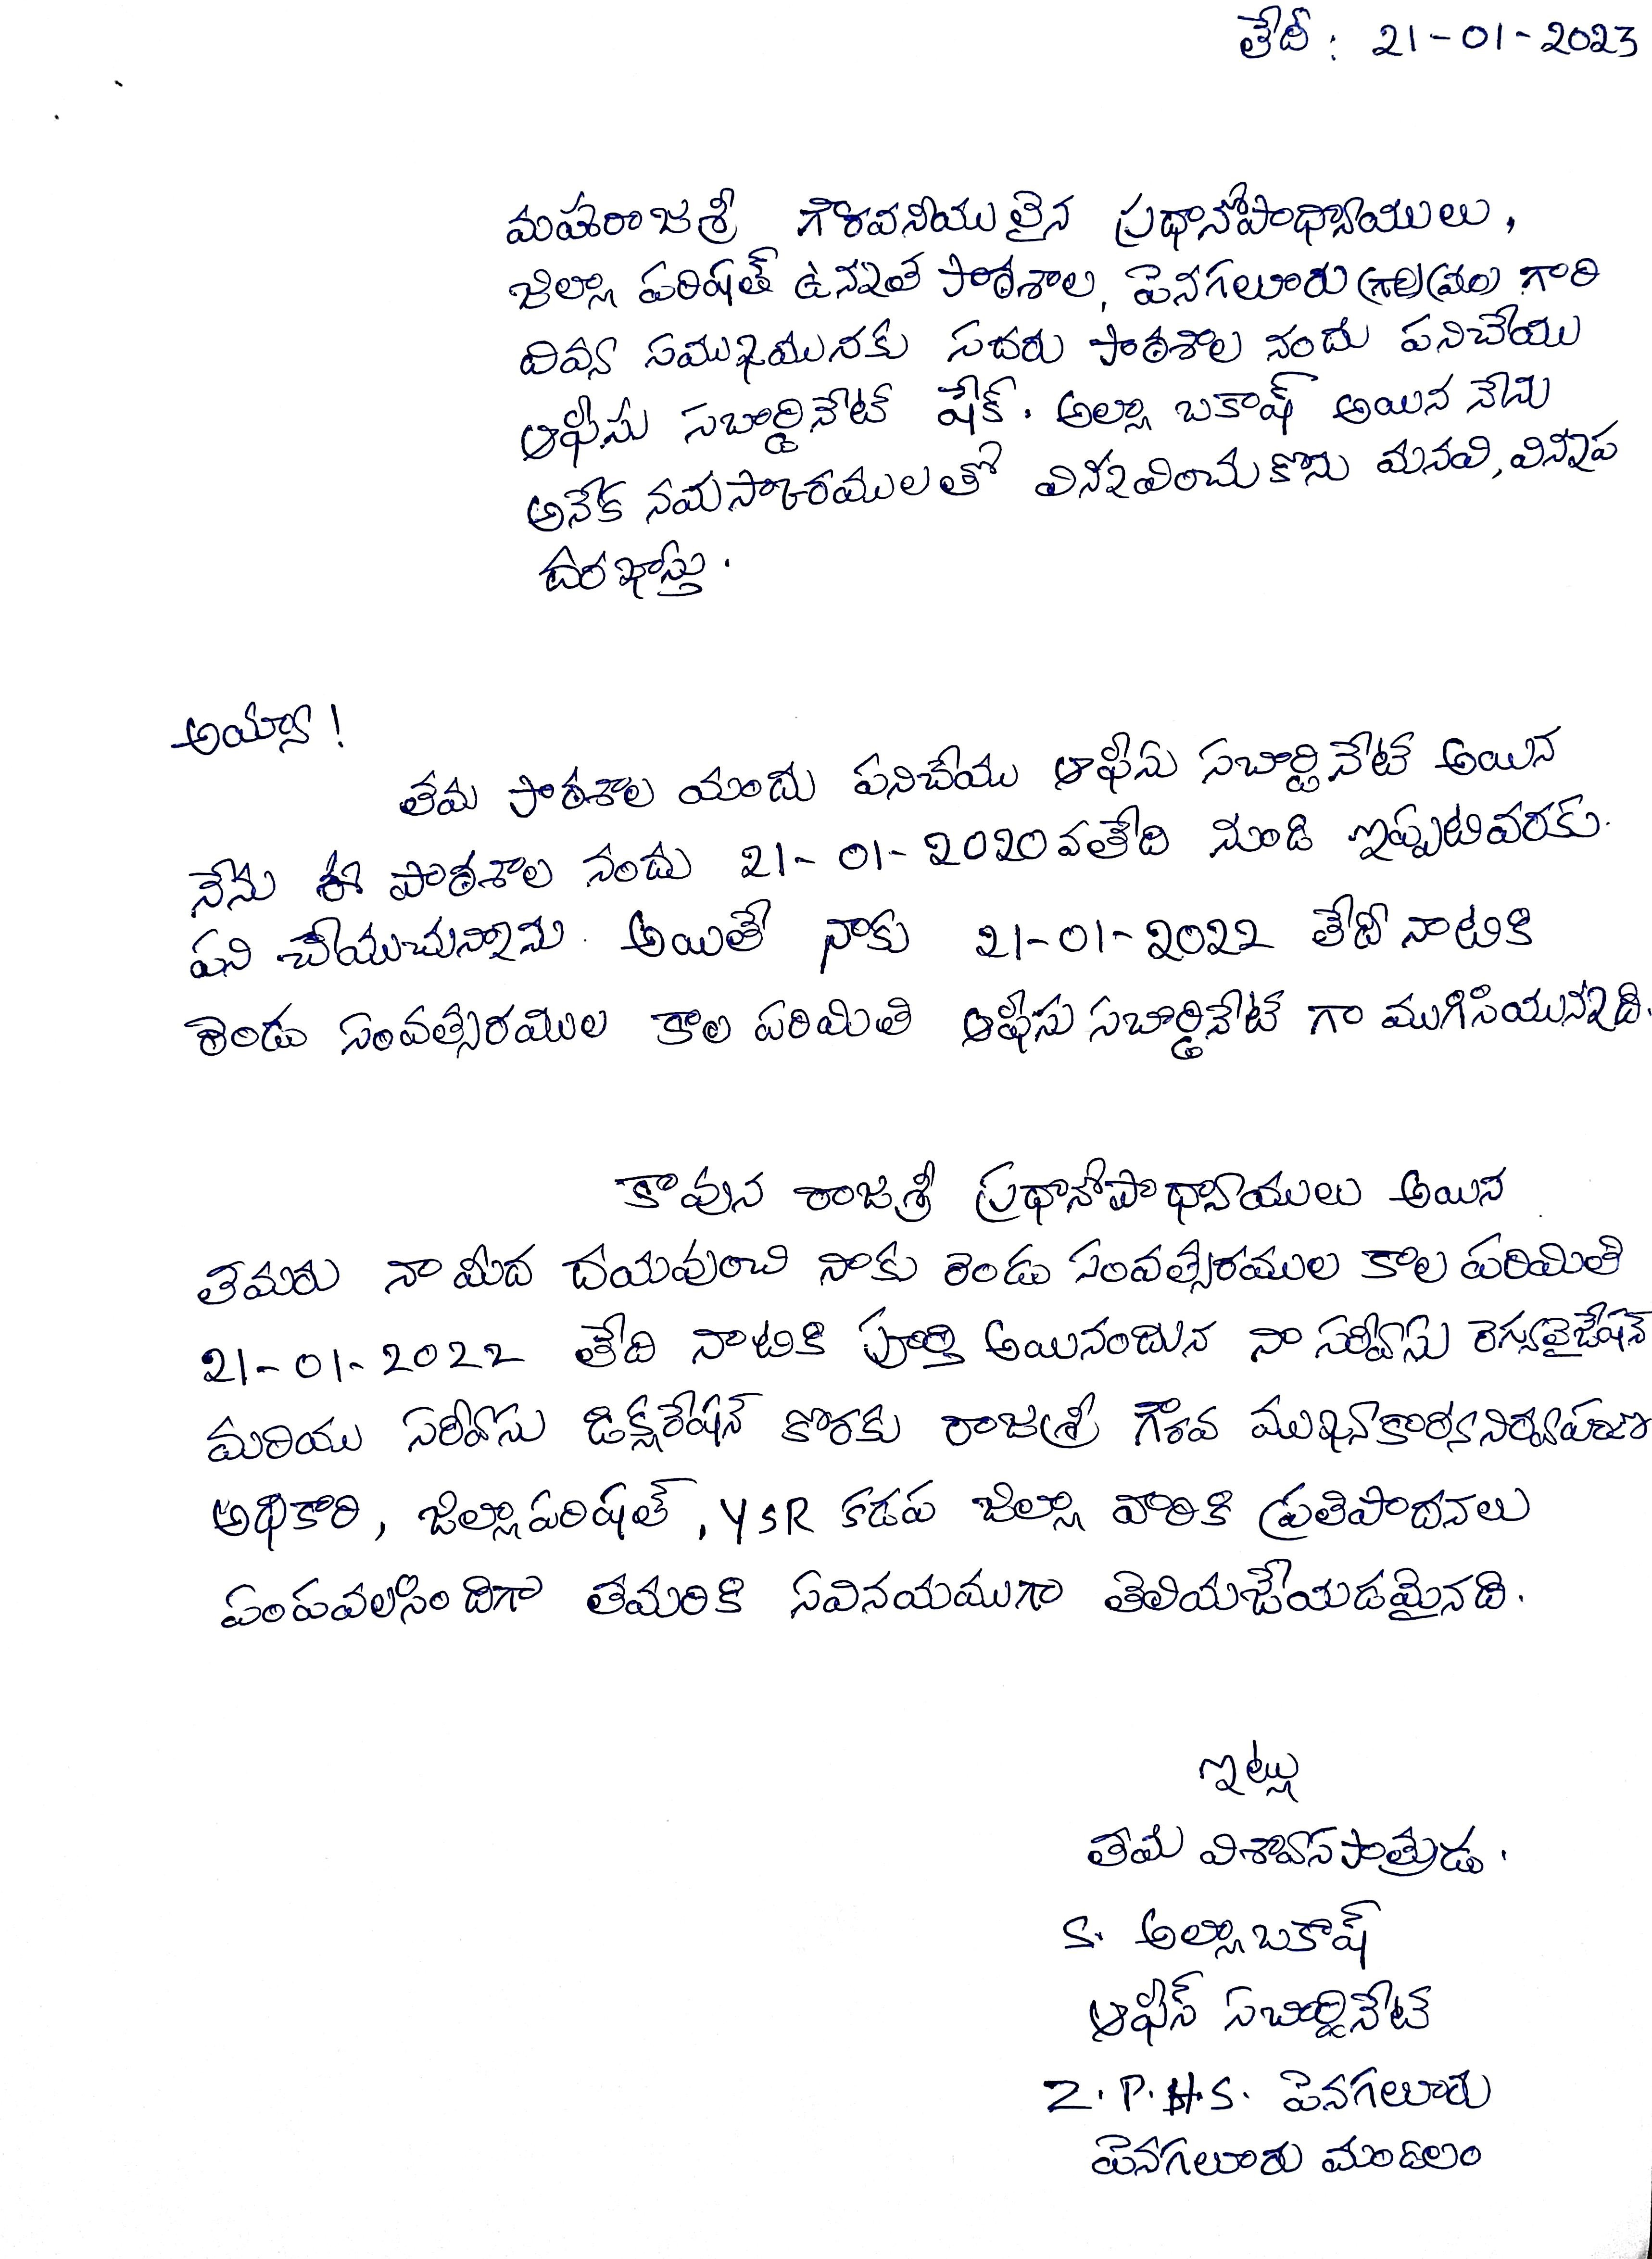 తేదీ : 21-01-2023
మహారాజశ్రీ గౌరవనీయులైన ప్రధానోపాధ్యాయులు,
జిల్లా పరిషత్ ఉన్నత పాఠశాల, పెనగలూరు (గ్రా) (మం) గారి
దివ్య సముఖమునకు సదరు పాఠశాల నందు పనిచేయు
ఆఫీసు సబార్డినేట్ షేక్. అల్లా బకాష్ అయిన నేను
అనేక నమస్కారములతో విన్నవించుకొను మనవి, విన్నప
దరఖాస్తు.
అయ్యా!
తమ పాఠశాల యందు పనిచేయు ఆఫీసు సబార్డినేట్ అయిన
నేను ఈ పాఠశాల నందు 21-01-2020వతేది నుండి ఇప్పటివరకు.
పని చేయుచున్నాను. అయితే నాకు 21-01-2022 తేదీ నాటికి
రెండు సంవత్సరముల కాల పరిమితి ఆఫీసు సబార్డినేట్ గా ముగిసియున్నది.
కావున రాజశ్రీ ప్రధానోపాధ్యాయులు అయిన
తమరు నా మీద దయవుంచి నాకు రెండు సంవత్సరముల కాల పరిమితి
21-01-2022 తేది నాటికి పూర్తి అయినందున నా సర్వీసు రెగ్యులైజేషన్
మరియు సర్వీసు డిక్లరేషన్ కొరకు రాజశ్రీ గౌరవ ముఖ్యకార్యనిర్వహణ
అధికారి, జిల్లాపరిషత్, YSR కడప జిల్లా వారికి ప్రతిపాదనలు
పంపవలసిందిగా తమరికి సవినయముగా తెలియజేయడమైనది.
ఇట్లు
తమ విశ్వాసపాత్రుడు.
S. అల్లాబకాష్
ఆఫీస్ సబార్డినేట్
Z.P.H.S. పెనగలూరు
పెనగలూరు మండలం